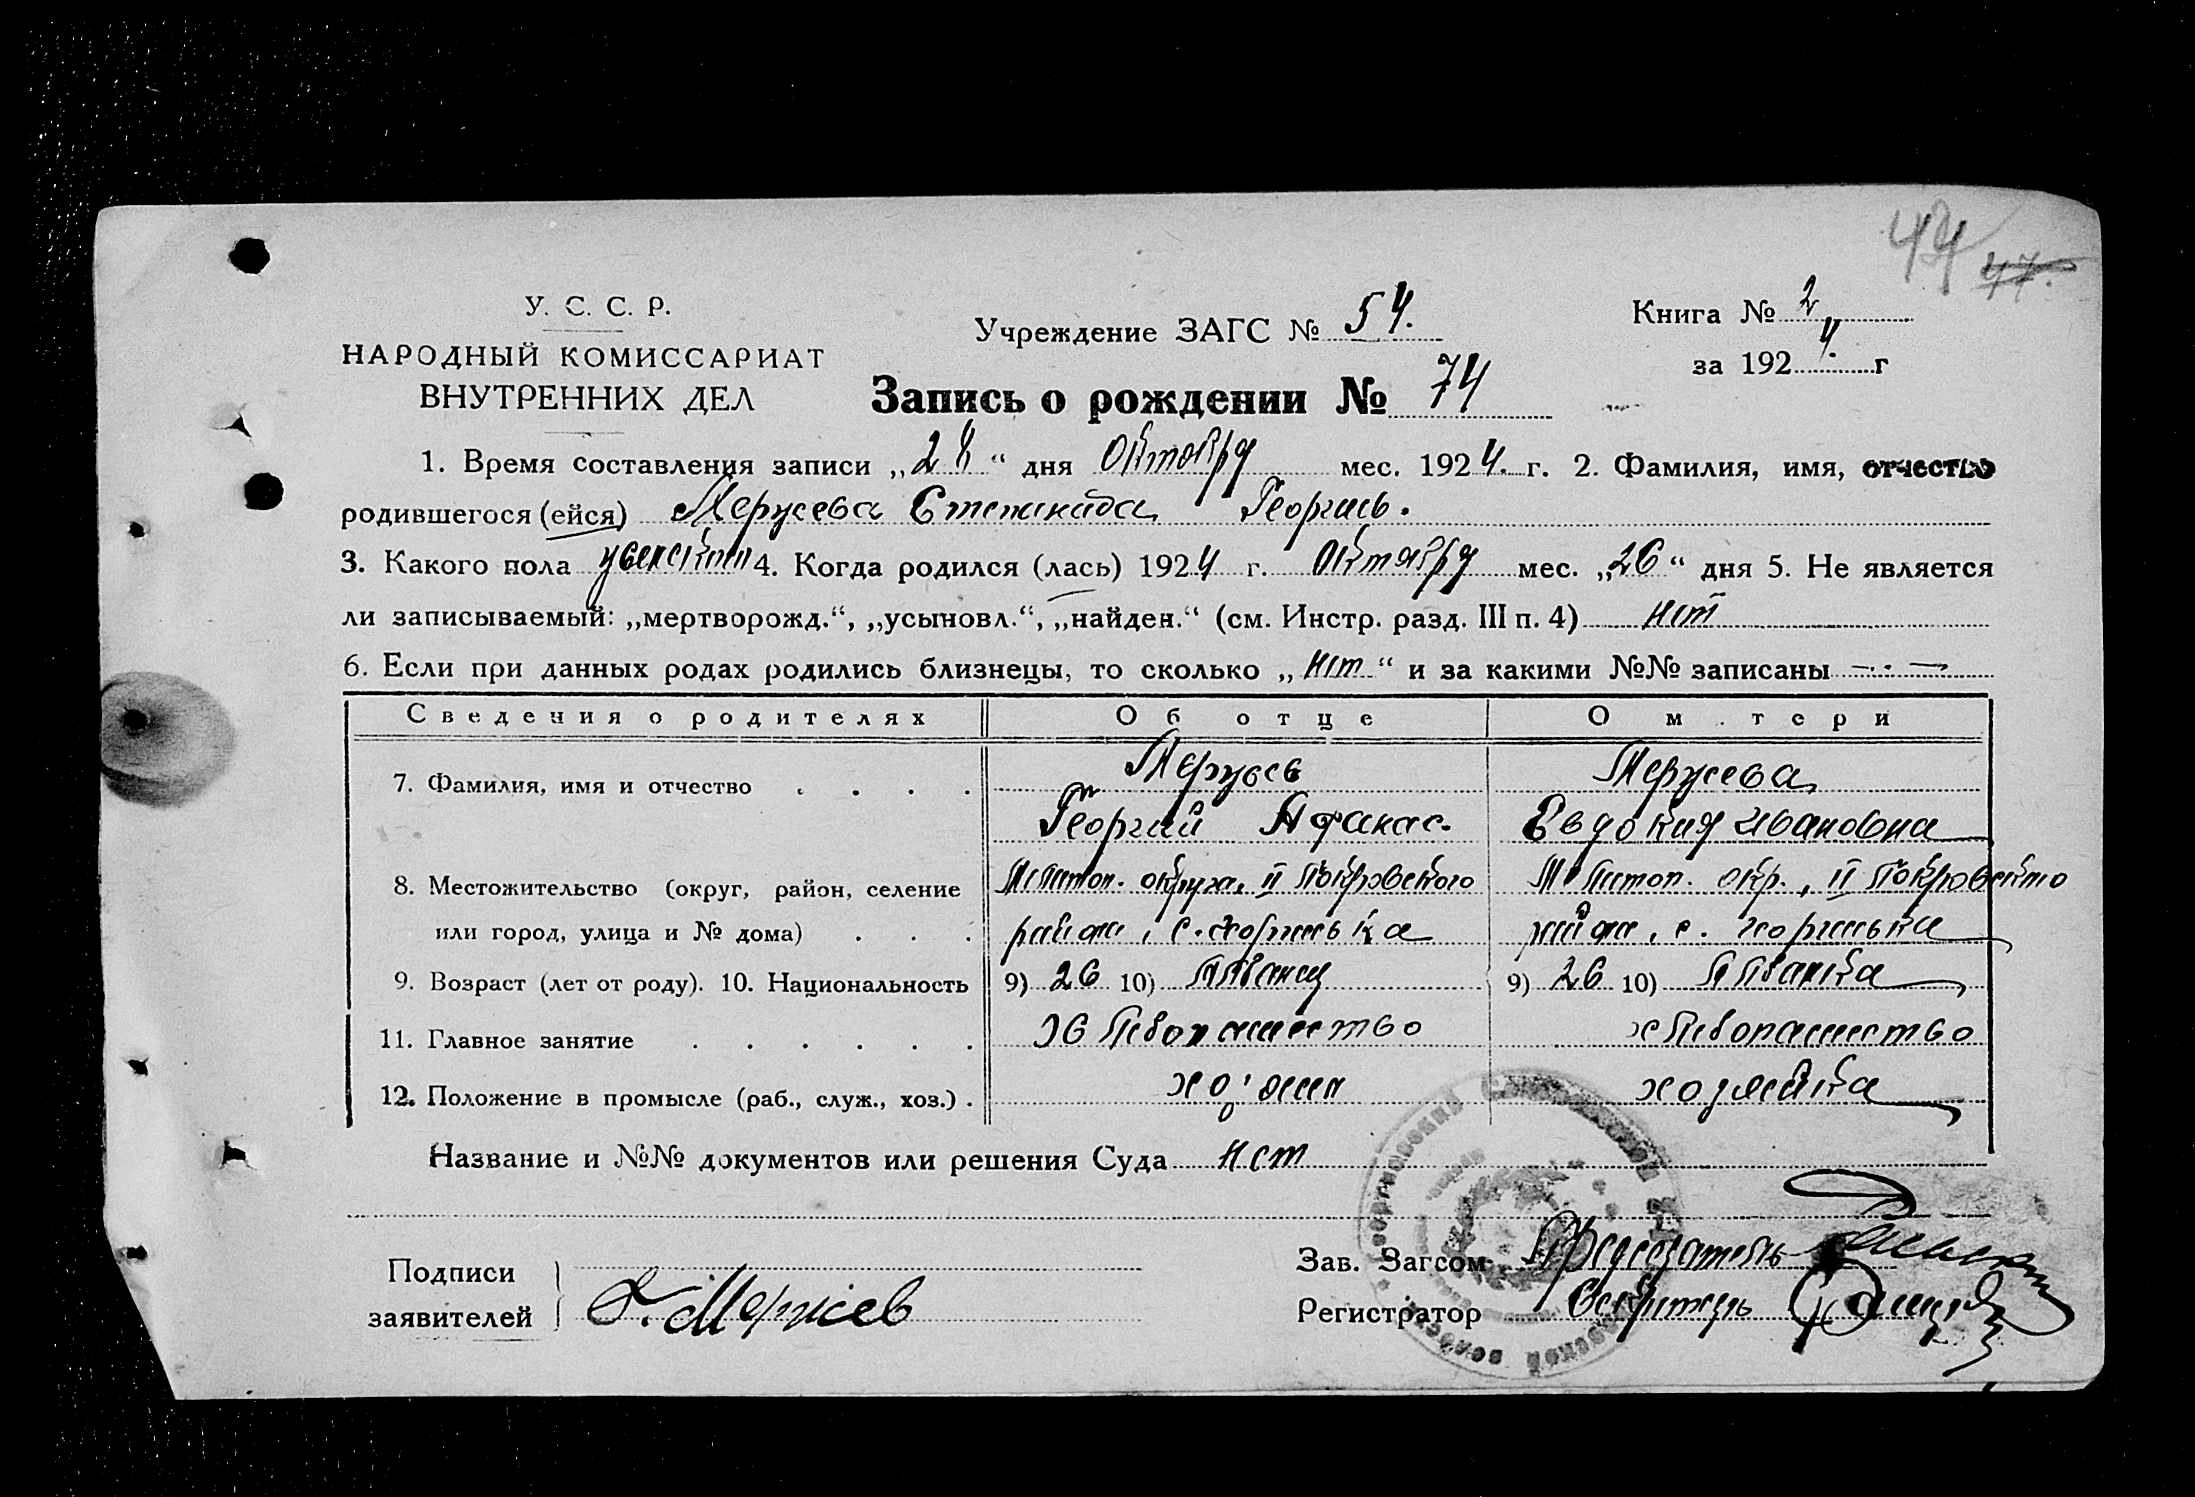 49 47.
У. С. С. Р.
НАРОДНЫЙ КОМИССАРИАТ
ВНУТРЕННИХ ДЕЛ
Учреждение ЗАГС № 54.
Книга № 2
за 1924. г
Запись о рождении № 74
1. Время составления записи „28“ дня Октября мес. 1924. г. 2. Фамилия, имя, отчество
родившегося (ейся) Мержева Степанида Георгиев.
3. Какого пола женского 4. Когда родился (лась) 1924 г. Октября мес. „26“ дня 5. Не является
ли записываемый: „мертворожд.“, „усыновл.“, „найден.“ (см. Инстр. разд. III п. 4) нет
6. Если при данных родах родились близнецы, то сколько „нет“ и за какими №№ записаны
Сведения о родителях Об отце О м тери
7. Фамилия, имя и отчество Мержев Мержева
Георгий Афанас. Евдокия Ивановна
8. Местожительство (округ, район, селение Мелитоп. округа, II Покровского Мелитоп. окр., II Покровского
или город, улица и № дома) района, с. района, с.
9. Возраст (лет от роду). 10. Национальность 9) 26 10) Албанец 9) 26 10) Албанка
11. Главное занятие хлебопашество хлебопашество
12. Положение в промысле (раб., служ., хоз.) хозяин хозяйка
Название и №№ документов или решения Суда нет
Подписи
заявителей Г. Мержев
Зав. Загсом Председатель
Регистратор Секретарь